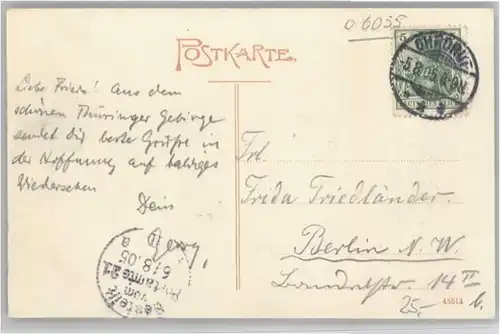 06055
POSTKARTE.
5
OHRDRUF
-5.8.05.8-9N
Liebe Friede! Aus dem
schönen Thüringer Gebirge
sendet dir beste Grüße in
der Hoffnung auf baldiges
Wiedersehen
Dein
Georg.
Bestellt
vom
Postamte 21
6.8.05
Frl.
Frida Friedländer
Berlin N. W.
14 II
25,-
45513